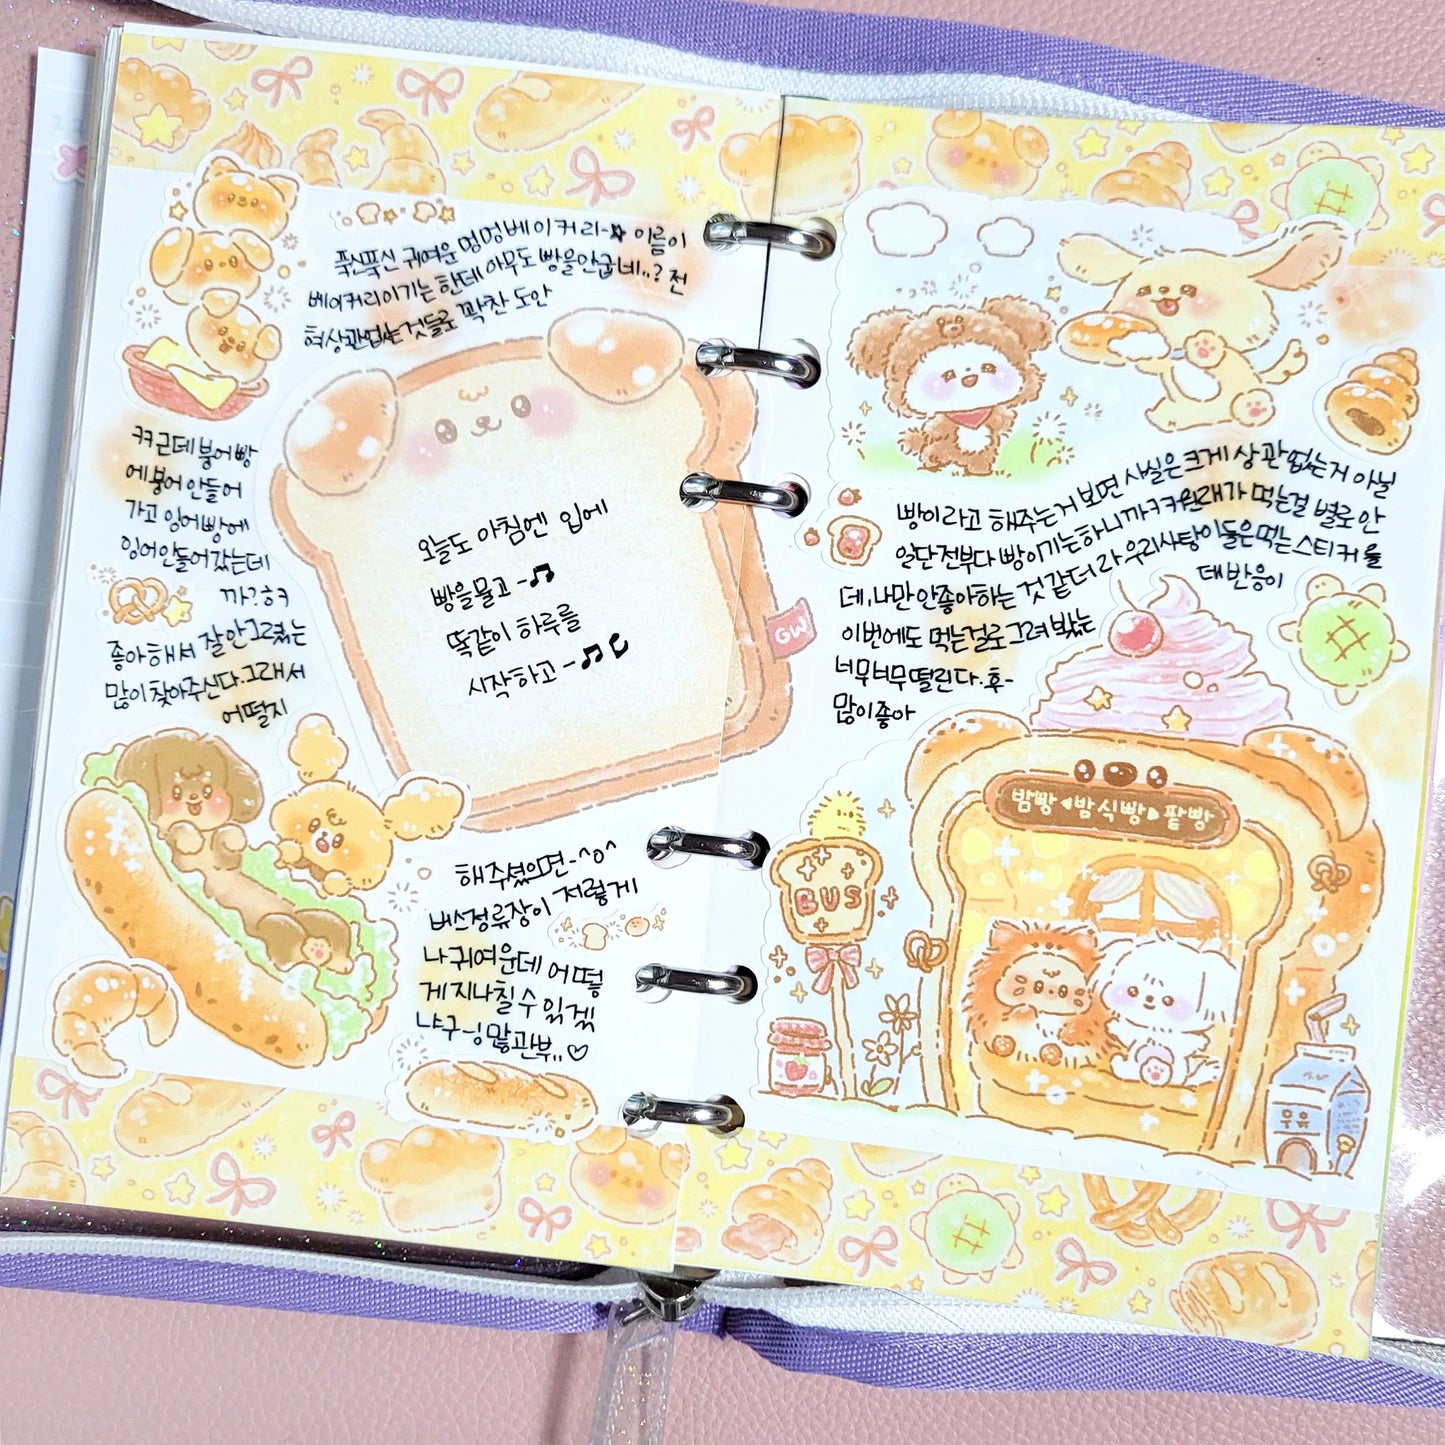 푹신푹신 귀여운 멍멍베이커리-★ 이름이
베이커리이기는 한데 아무도 빵을 안굽네..? 전
혀 상관없는 것들로 꽉찬 도안
ㅋㅋ근데 붕어빵
에 붕어 안들어
가고 잉어빵에
잉어안들어갔는데
까?ㅎㅋ
좋아해서 잘 안그렸는
많이 찾아주신다.그래서
어떨지
오늘도 아침엔 입에
빵을 물고-♫
똑같이 하루를
시작하고-♫
GW
해주셨으면-^o^
버스정류장이 저렇게
나 귀여운데 어떻
게 지나칠 수 있겠
냐구-! 많관부..♡
빵이라고 해주는거 보면 사실은 크게 상관 없는거 아닐
까ㅋㅋ원래가 먹는걸 별로 안
일단 전부다 빵이기는하니
데,나만 안좋아하는 것 같더라 우리사탕이들은 먹는 스티커를
이번에도 먹는걸로 그려 봤는
데 반응이
너무너무 떨린다.후-
많이좋아
BUS
밤빵 밤식빵 팥빵
우유